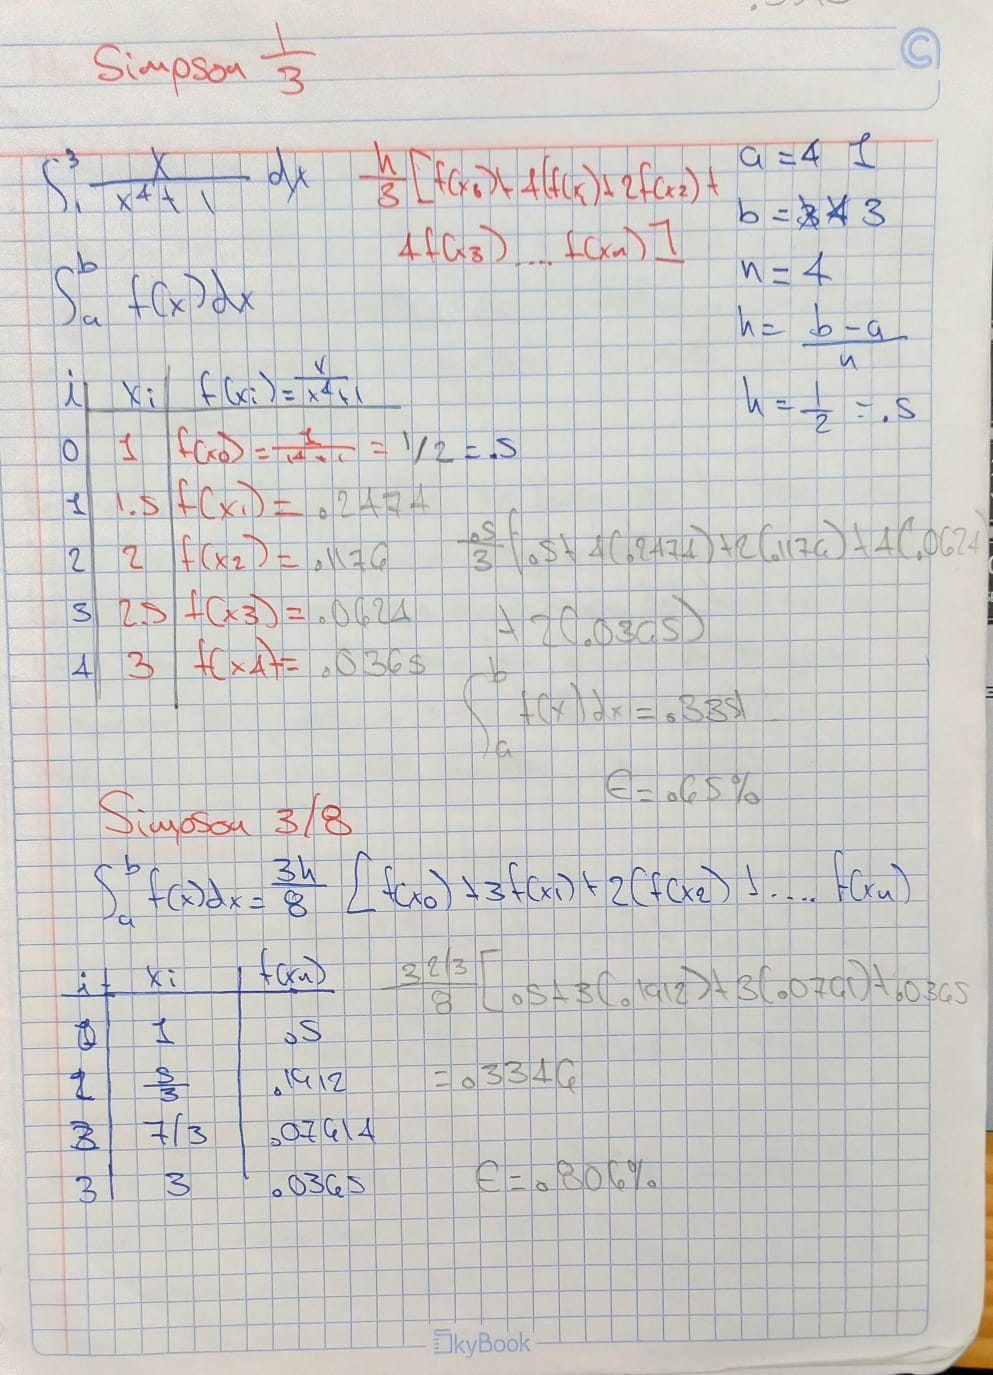 Simpson 1/3
∫₁³ x/(x⁴+1) dx
h/3 [f(x₀)+4(f(x₁)+2f(x₂)+
4f(x₃)....f(xn)]
a=4 1
b=3 4 3
n=4
h=(b-a)/n
h=1/2=.5
∫ₐᵇ f(x)dx
i xi f(xi)=x/(x⁴+1)
0 1 f(x₀)=1/(1⁴+1)=1/2=.5
1 1.5 f(x₁)=.2474
2 2 f(x2)=.1176
3 2.5 f(x3)=.0624
4 3 f(x4)=.0365
.5/3 [.5+4(.2474)+2(.1176)+4(.0624)
+2(.0365)
∫ₐᵇ f(x)dx=.3351
E=.65%
Simpson 3/8
∫ₐᵇ f(x)dx=3h/8 [f(x₀)+3f(x₁)+2(f(x₂)+....f(xn)
i xi f(xn)
0 1 .5
1 5/3 .1912
2 7/3 .07614
3 3 .0365
3 2/3 / 8 [.5+3(.1912)+3(.0761)+.0365
=.3346
E=.806%
SkyBook